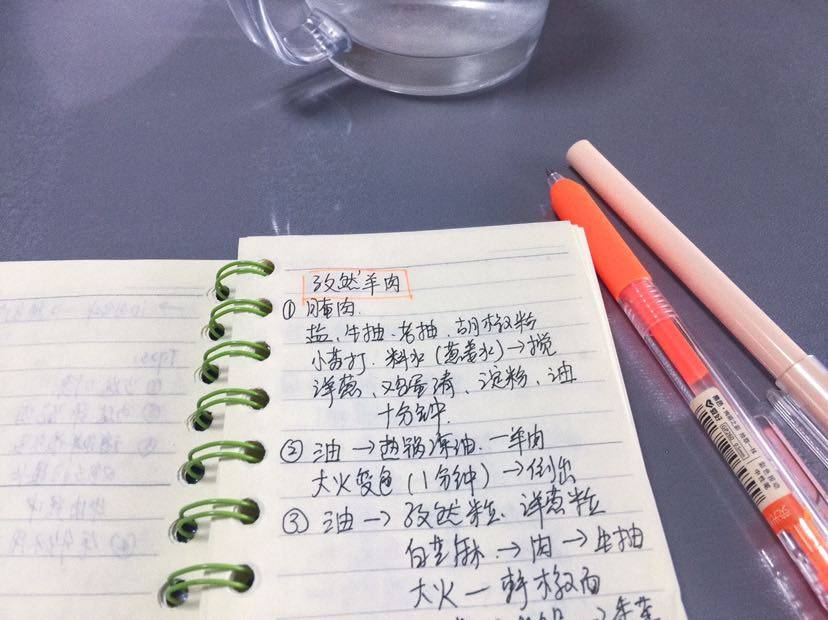 孜然羊肉
① 腌肉.
盐、生抽、老抽、胡椒粉
小苏打、料水(葱姜水)→搅
洋葱、鸡蛋清、淀粉、油
十分钟.
② 油→热锅凉油.一羊肉
大火变色(1分钟)→倒出
③ 油→孜然粒、洋葱粒
白芝麻→肉→生抽
大火一干椒面